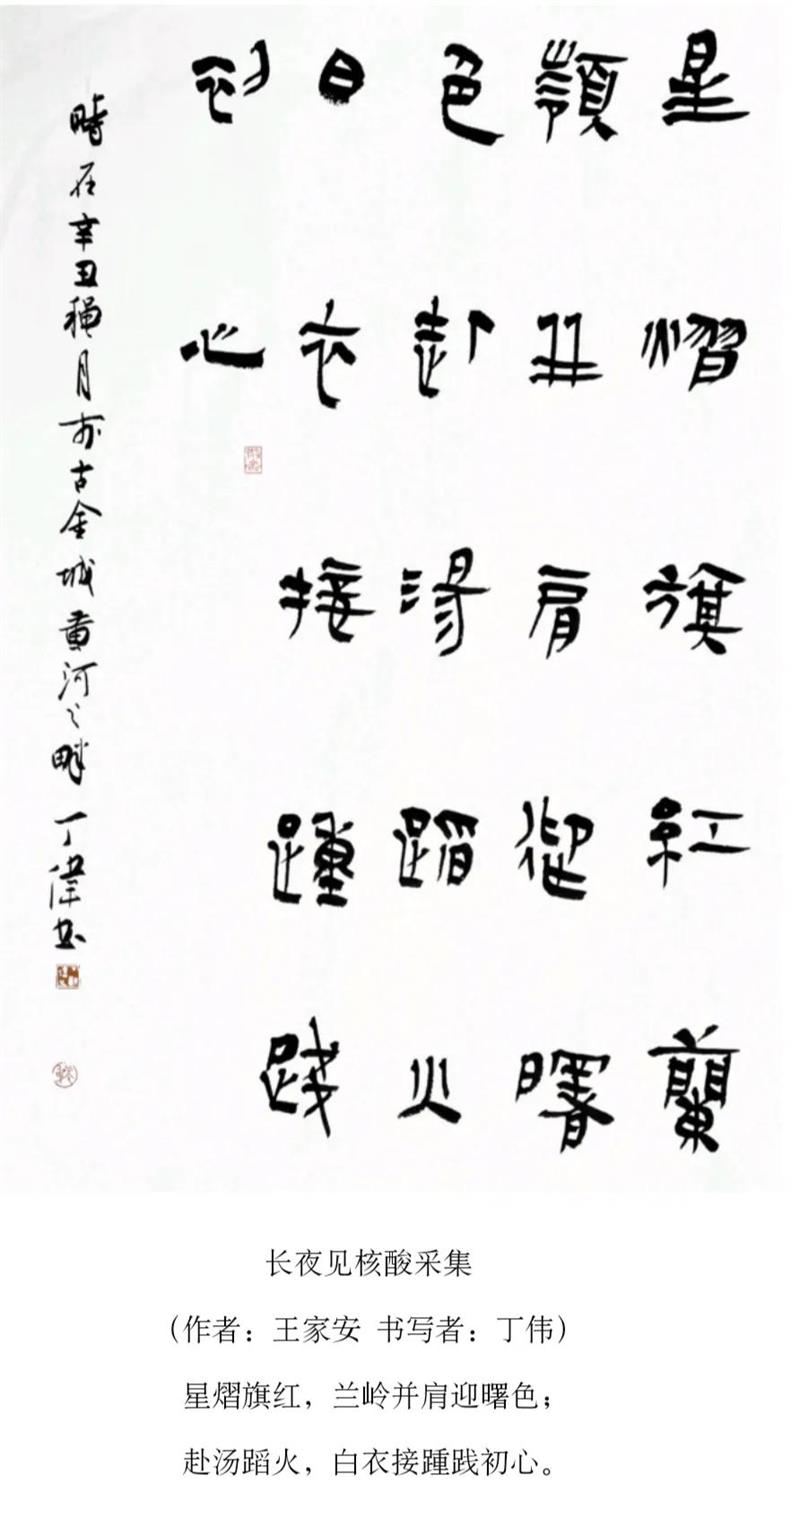 星熠旗紅蘭
嶺并肩迎曙
色赴湯蹈火
白衣接踵踐
初心
時在辛丑穐月於古金城黄河之畔丁偉书
长夜见核酸采集
（作者：王家安 书写者：丁伟）
星熠旗红，兰岭并肩迎曙色；
赴汤蹈火，白衣接踵践初心。